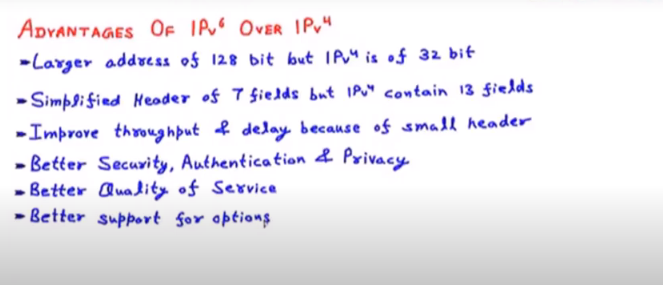 ADVANTAGES OF IPv6 OVER IPv4
- Larger address of 128 bit but IPv4 is of 32 bit
- Simplified Header of 7 fields but IPv4 contain 13 fields
- Improve throughput & delay because of small header
- Better Security, Authentication & Privacy
- Better Quality of Service
- Better support for options